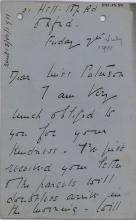 21 Hill Top Rd
Oxford.
Friday 7th July
1911
Dear Miss Paterson
I am very
much obliged to
you for your
kindness. I've just
received your letter
& the parcels will
doubtless arrive in
the morning. Will